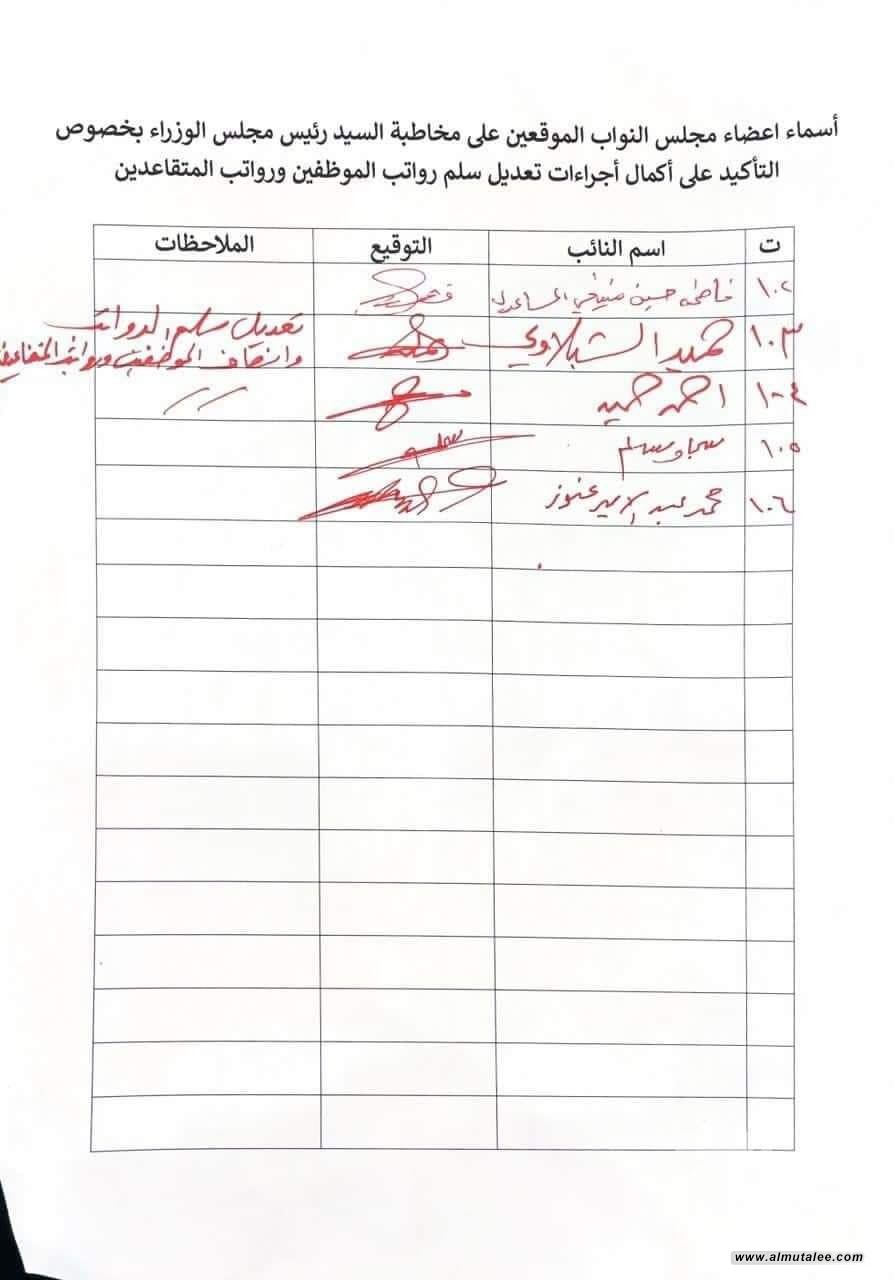 أسماء اعضاء مجلس النواب الموقعين على مخاطبة السيد رئيس مجلس الوزراء بخصوص
التأكيد على أكمال أجراءات تعديل سلم رواتب الموظفين ورواتب المتقاعدين
ت اسم النائب التوقيع الملاحظات
١٠٢ فاطمة حسين
١٠٣ حميد الشبلاوي تعديل سلم الرواتب
وانصاف الموظفين ورواتب المتقاعدين
١٠٤ احمد حميد //
١٠٥
١٠٦ محمد عبد الامير عنوز
www.almutalee.com